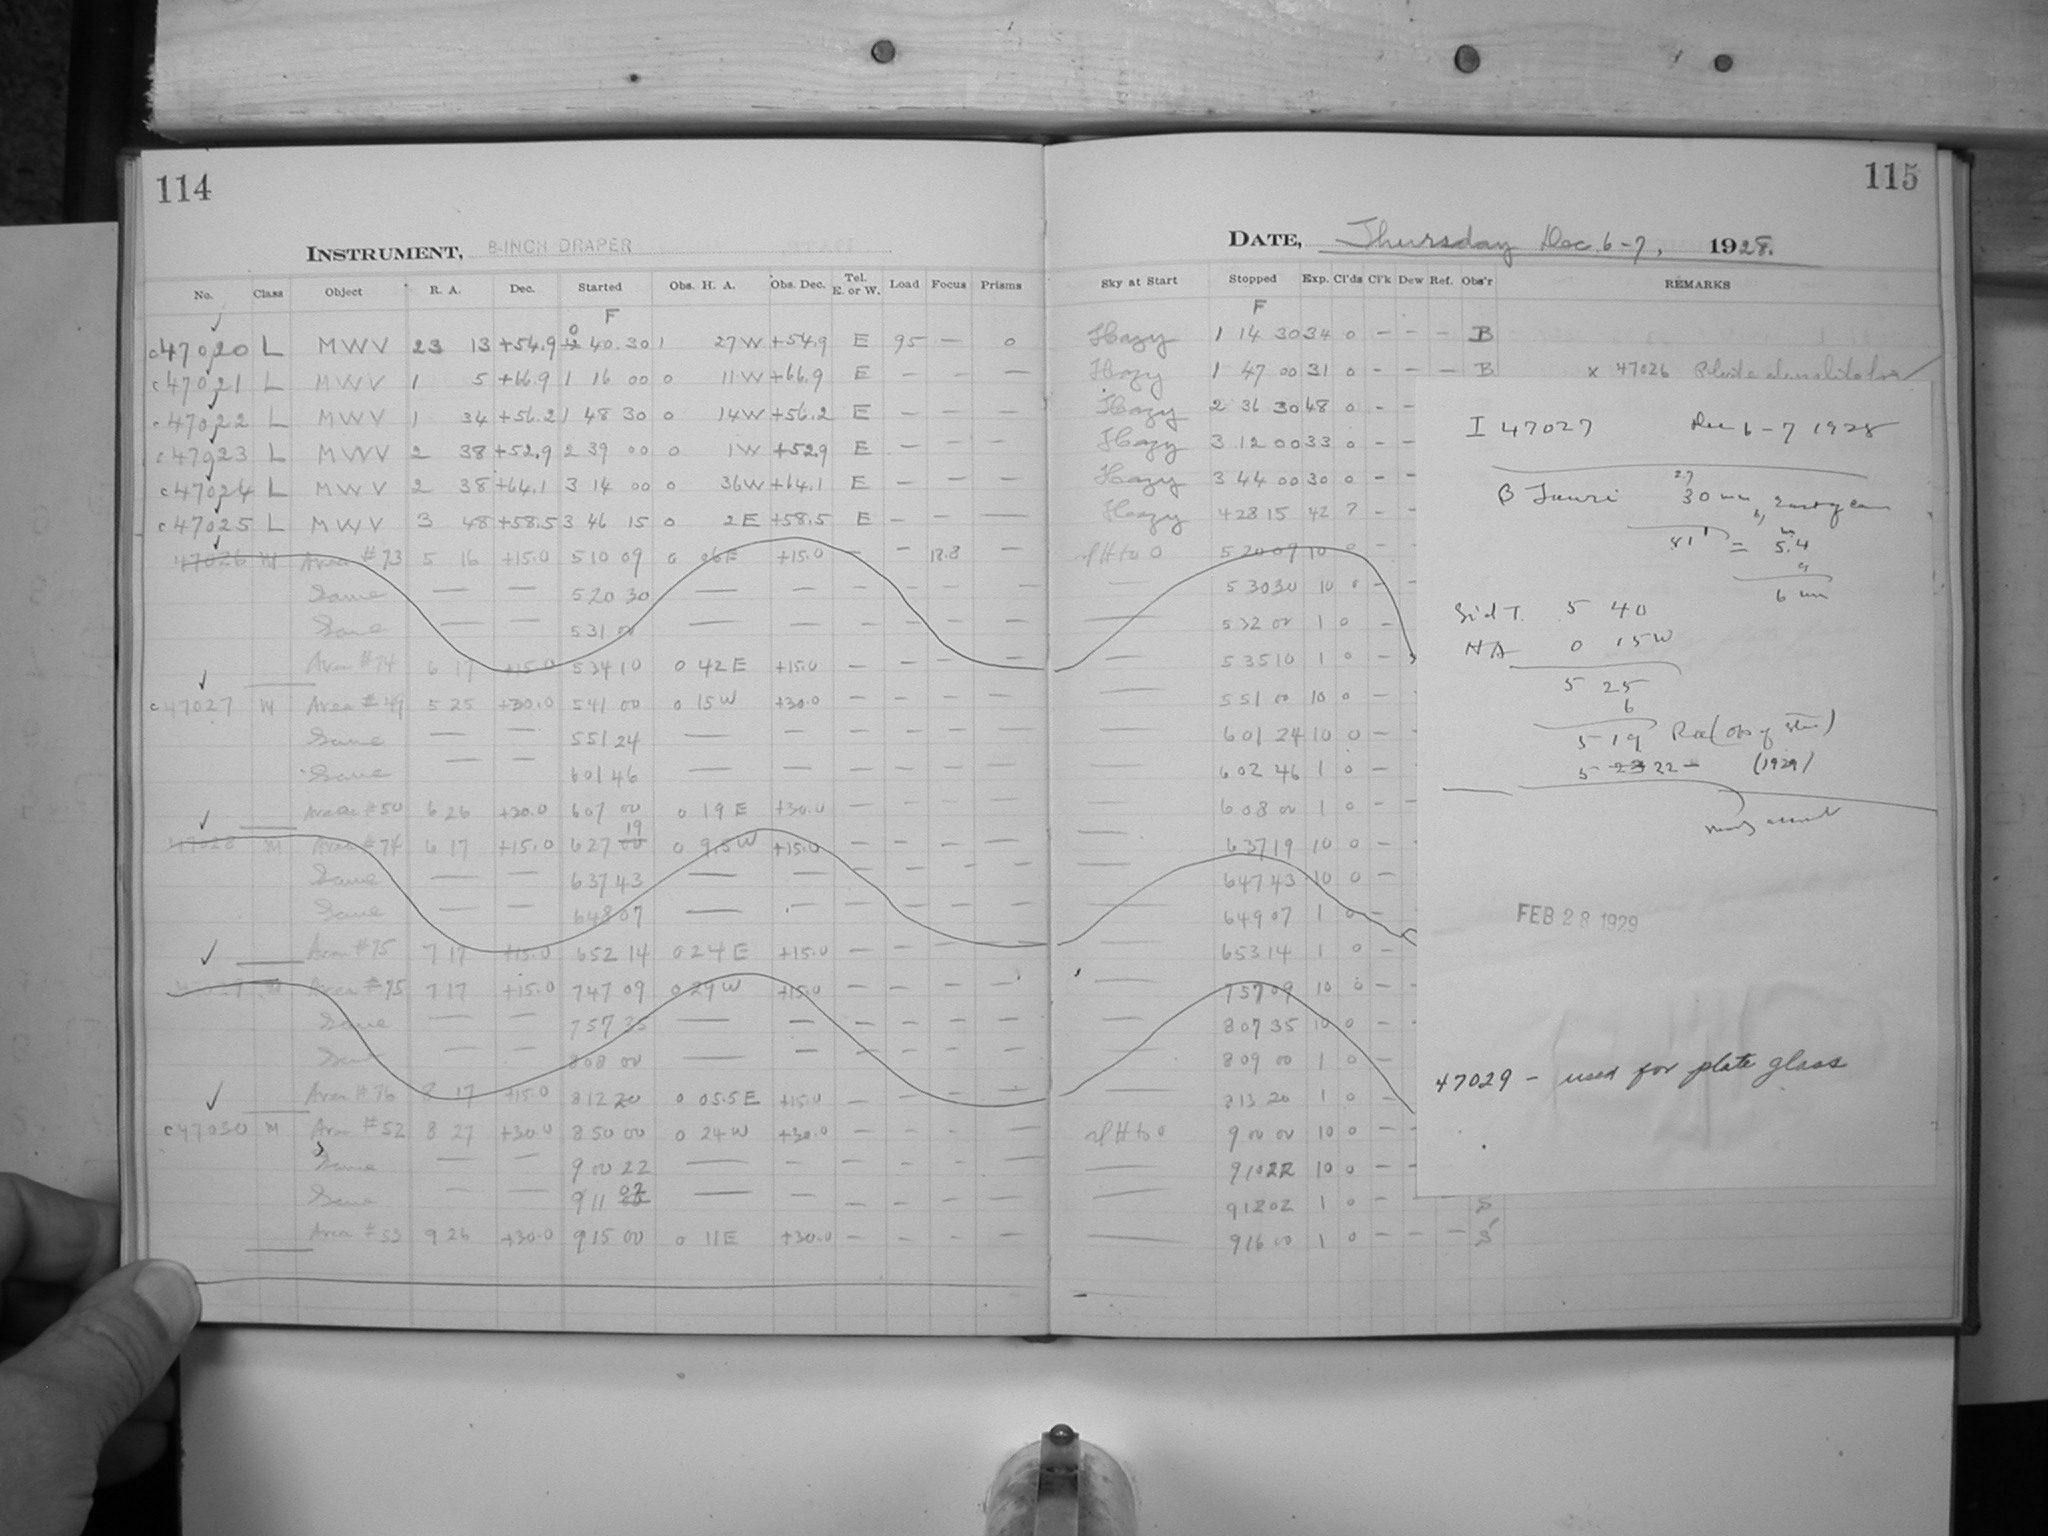 114
INSTRUMENT, 8-INCH DRAPER
No. Class Object R. A. Dec. Started Obs. H. A. Obs. Dec. Tel. E. or W. Load Focus Prisms
F
c47020 L MWV 23 13 +54.9 0 12 40.30 1 27W +54.9 E 95 — 0
c47021 L MWV 1 5 +66.9 1 16 00 0 11W +66.9 E — — —
c47022 L MWV 1 34 +56.2 1 48 30 0 14W +56.2 E — — —
c47023 L MWV 2 38 +52.9 2 39 00 0 1W +52.9 E — — —
c47024 L MWV 2 38 +64.1 3 14 00 0 36W +64.1 E — — —
c47025 L MWV 3 48 +58.5 3 46 15 0 2E +58.5 E — — —
47026 M Area #73 5 16 +15.0 5 10 09 0 06E +15.0 — — 13.8 —
Same — — 5 20 30 — — — — — —
Same — — 5 31 00 — — — — — —
Area #74 6 17 +15.0 5 34 10 0 42E +15.0 — — — —
c47027 M Area #49 5 25 +30.0 5 41 00 0 15W +30.0 — — — —
Same — — 5 51 24 — — — — — —
Same — — 6 01 46 — — — — — —
Area #50 6 26 +30.0 6 07 00 0 19E +30.0 — — — —
47028 M Area #74 6 17 +15.0 6 27 19 00 0 9.5W +15.0 — — — —
Same — — 6 37 43 — — — — — —
Same — — 6 48 07 — — — — — —
Area #75 7 17 +15.0 6 52 14 0 24E +15.0 — — — —
47029 M Area #75 7 17 +15.0 7 47 09 0 29W +15.0 — — — —
Same — — 7 57 35 — — — — — —
Same — — 8 08 00 — — — — — —
Area #76 8 17 +15.0 8 12 20 0 05.5E +15.0 — — — —
c47030 M Area #52 8 27 +30.0 8 50 00 0 24W +30.0 — — — —
Same — — 9 00 22 — — — — — —
Same — — 9 11 02 — — — — — —
Area #53 9 26 +30.0 9 15 00 0 11E +30.0 — — — —
115
DATE, Thursday Dec. 6-7, 1928.
Sky at Start Stopped Exp. Cl'ds Cl'k Dew Ref. Obs'r REMARKS
F
Hazy 1 14 30 34 0 - - - B
Hazy 1 47 00 31 0 - - - B x 47026
Hazy 2 36 30 48 0 - -
Hazy 3 12 00 33 0 - -
Hazy 3 44 00 30 0 - -
Hazy 4 28 15 42 ? - -
5 20 09 10 0 -
— 5 30 30 10 0 -
— 5 32 00 1 0 -
— 5 35 10 1 0 -
— 5 51 00 10 0 -
— 6 01 24 10 0 -
— 6 02 46 1 0 -
— 6 08 00 1 0 -
— 6 37 19 10 0 -
— 6 47 43 10 0 -
— 6 49 07 1 0 -
— 6 53 14 1 0 -
— 7 57 09 10 0 -
— 8 07 35 10 0 -
— 8 09 00 1 0 -
— 8 13 20 1 0 -
9 00 00 10 0 -
— 9 10 22 10 0 - -
— 9 12 02 1 0 - - - S
— 9 16 00 1 0 - - - S
I 47027 Dec 6-7 1928
β Tauri 27 30 mm
81 = 5.4
6 mm
Sid T. 5 40
HA 0 15W
5 25
6
5 19 RA (obs of star)
5 23 22 - (1929)
FEB 28 1929
47029 - used for plate glass